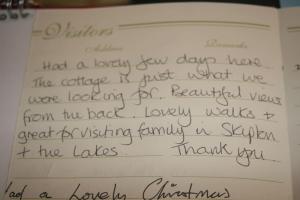 Visitors
Address Remarks
Had a lovely few days here
The cottage is just what we
were looking for. Beautiful views
from the back. Lovely walks +
great for visiting family in Skipton
+ the Lakes. Thank you
had a lovely Christmas